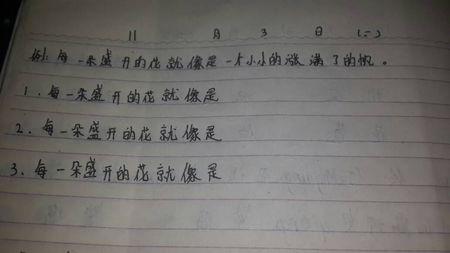 11 月 3 日 (二)
例：每一朵盛开的花就像是一个小小的涨满了的帆。
1. 每一朵盛开的花就像是
2. 每一朵盛开的花就像是
3. 每一朵盛开的花就像是